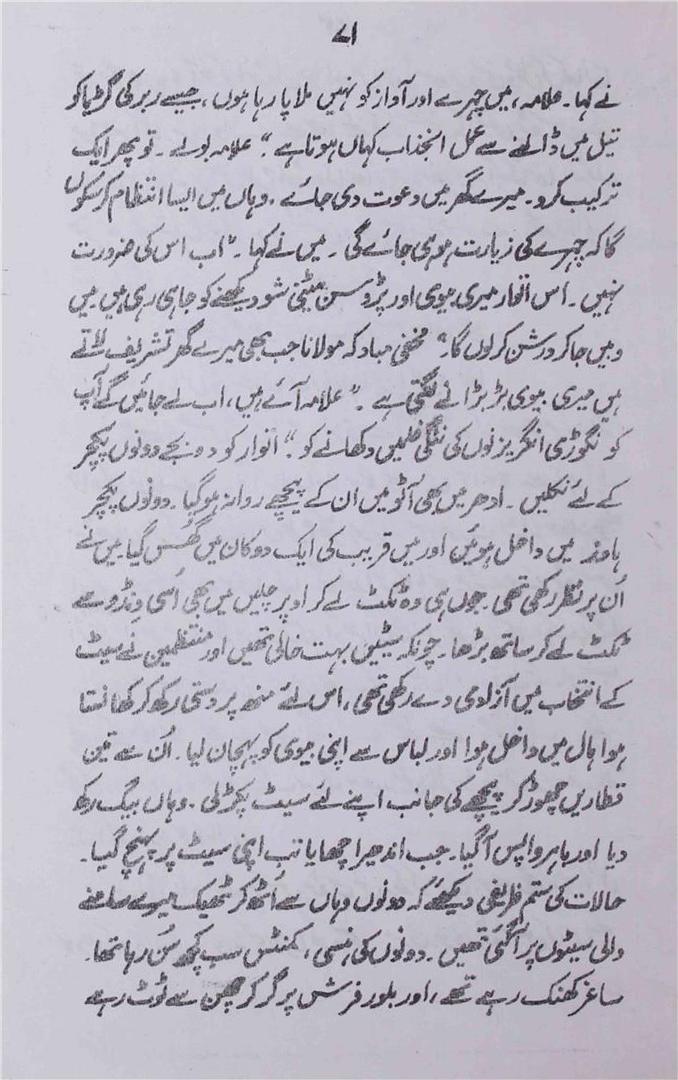 ۷۱
نے کہا۔ علامہ، میں چہرے اور آواز کو نہیں ملا پا رہا ہوں، جیسے ربر کی گڑیا کو
تیل میں ڈالنے سے عمل انجذاب کہاں ہوتا ہے“ علامہ بولے۔ تو پھر ایک
ترکیب کرو۔ میرے گھر میں دعوت دی جائے۔ وہاں میں ایسا انتظام کر سکوں
گا کہ چہرے کی زیارت ہو ہی جائے گی۔ میں نے کہا۔ ”اب اس کی ضرورت
نہیں۔ اس اتوار میری بیوی اور پڑوسن میٹنی شو دیکھنے کو جا ہی رہی ہیں میں
وہیں جا کر درشن کر لوں گا۔“ مخفی مباد کہ مولانا جب بھی میرے گھر تشریف لاتے
ہیں میری بیوی بڑبڑانے لگتی ہے۔ ”علامہ آئے ہیں، اب لے جائیں گے آپ
کو نگوڑی انگریزنوں کی ننگی فلمیں دکھانے کو“ اتوار کو دو بجے دونوں پکچر
کے لئے نکلیں۔ ادھر میں بھی آٹو میں ان کے پیچھے روانہ ہو گیا۔ دونوں پکچر
ہاوز میں داخل ہوئیں اور میں قریب کی ایک دوکان میں گھس گیا میں نے
اُن پر نظر رکھی تھی۔ جوں ہی وہ ٹکٹ لے کر اوپر چلیں میں بھی اُسی ونڈو سے
ٹکٹ لے کر ساتھ بڑھا۔ چونکہ سیٹیں بہت خالی تھیں اور منتظمین نے سیٹ
کے انتخاب میں آزادی دے رکھی تھی، اس لئے منھ پر دستی رکھ کر کھانستا
ہوا ہال میں داخل ہوا اور لباس سے اپنی بیوی کو پہچان لیا۔ اُن سے تین
قطاریں چھوڑ کر پیچھے کی جانب اپنے لئے سیٹ پکڑ لی۔ وہاں بیگ رکھ
دیا اور باہر واپس آ گیا۔ جب اندھیرا چھایا تب اپنی سیٹ پر پہنچ گیا۔
حالات کی ستم ظریفی دیکھئے کہ دونوں وہاں سے اُٹھ کر ٹھیک میرے سامنے
والی سیٹوں پر آ گئی تھیں۔ دونوں کی ہنسی، کمنٹس سب کچھ سُن رہا تھا۔
ساغر کھنک رہے تھے، اور بلور فرش پر گر کر چھن سے ٹوٹ رہے